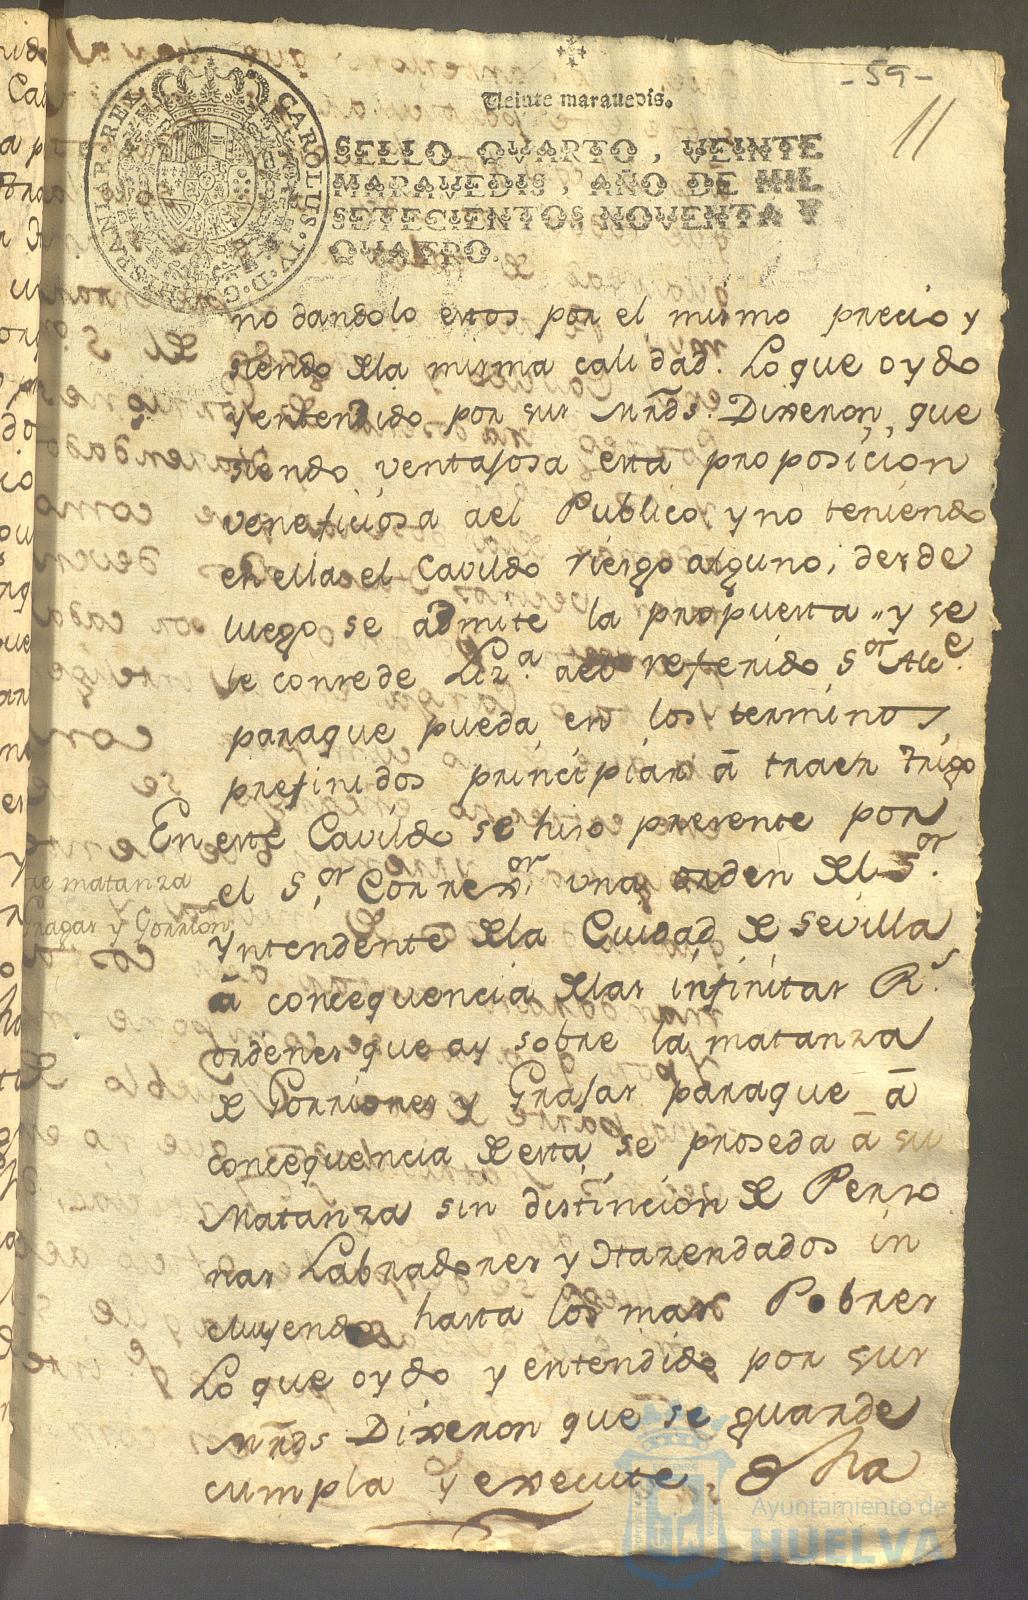 - 59 -
11
Veinte maravedis.
CAROLUS·IV·D·G·HISPANIAR·REX
SELLO QVARTO, VEINTE
MARAVEDIS, AÑO DE MIL
SETECIENTOS NOVENTA Y
QUATRO.
no dandolo estos por el mismo precio y
siendo dela misma calidad. Lo que oydo
y entendido por sus mrds. Dixeron, que
siendo ventajosa esta proposicion
veneficiosa ael Publico, y no teniendo
en ella el Cavildo riesgo alguno, desde
luego se admite la propuesta, y se
le consede Liz.ª ael referido S.or Alc.e
paraque pueda en los terminos
prefinidos principiar â traer trigo
En este Cavildo se hiso presente por
el S.or Correx.or una orden del S.or
re matanza
Yntendente dela Ciudad de Sevilla
Pragas y Gorrion
â consequencia delas infinitas R.s
ordenes que ay sobre la matanza
de Gorriones y Grajas paraque â
consequencia de esta, se proseda â su
Matanza sin distincion de Perso
nas Labradores y Hazendados in
cluyendo hasta los mas Pobres
Lo que oydo y entendido por sus
mrds Dixeron que se guarde
cumpla y execute, &
Ayuntamiento de
HUELVA